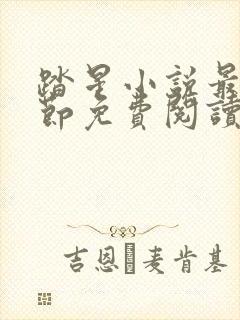 踏星小說最
節免費閱讀
吉恩�麦肯基